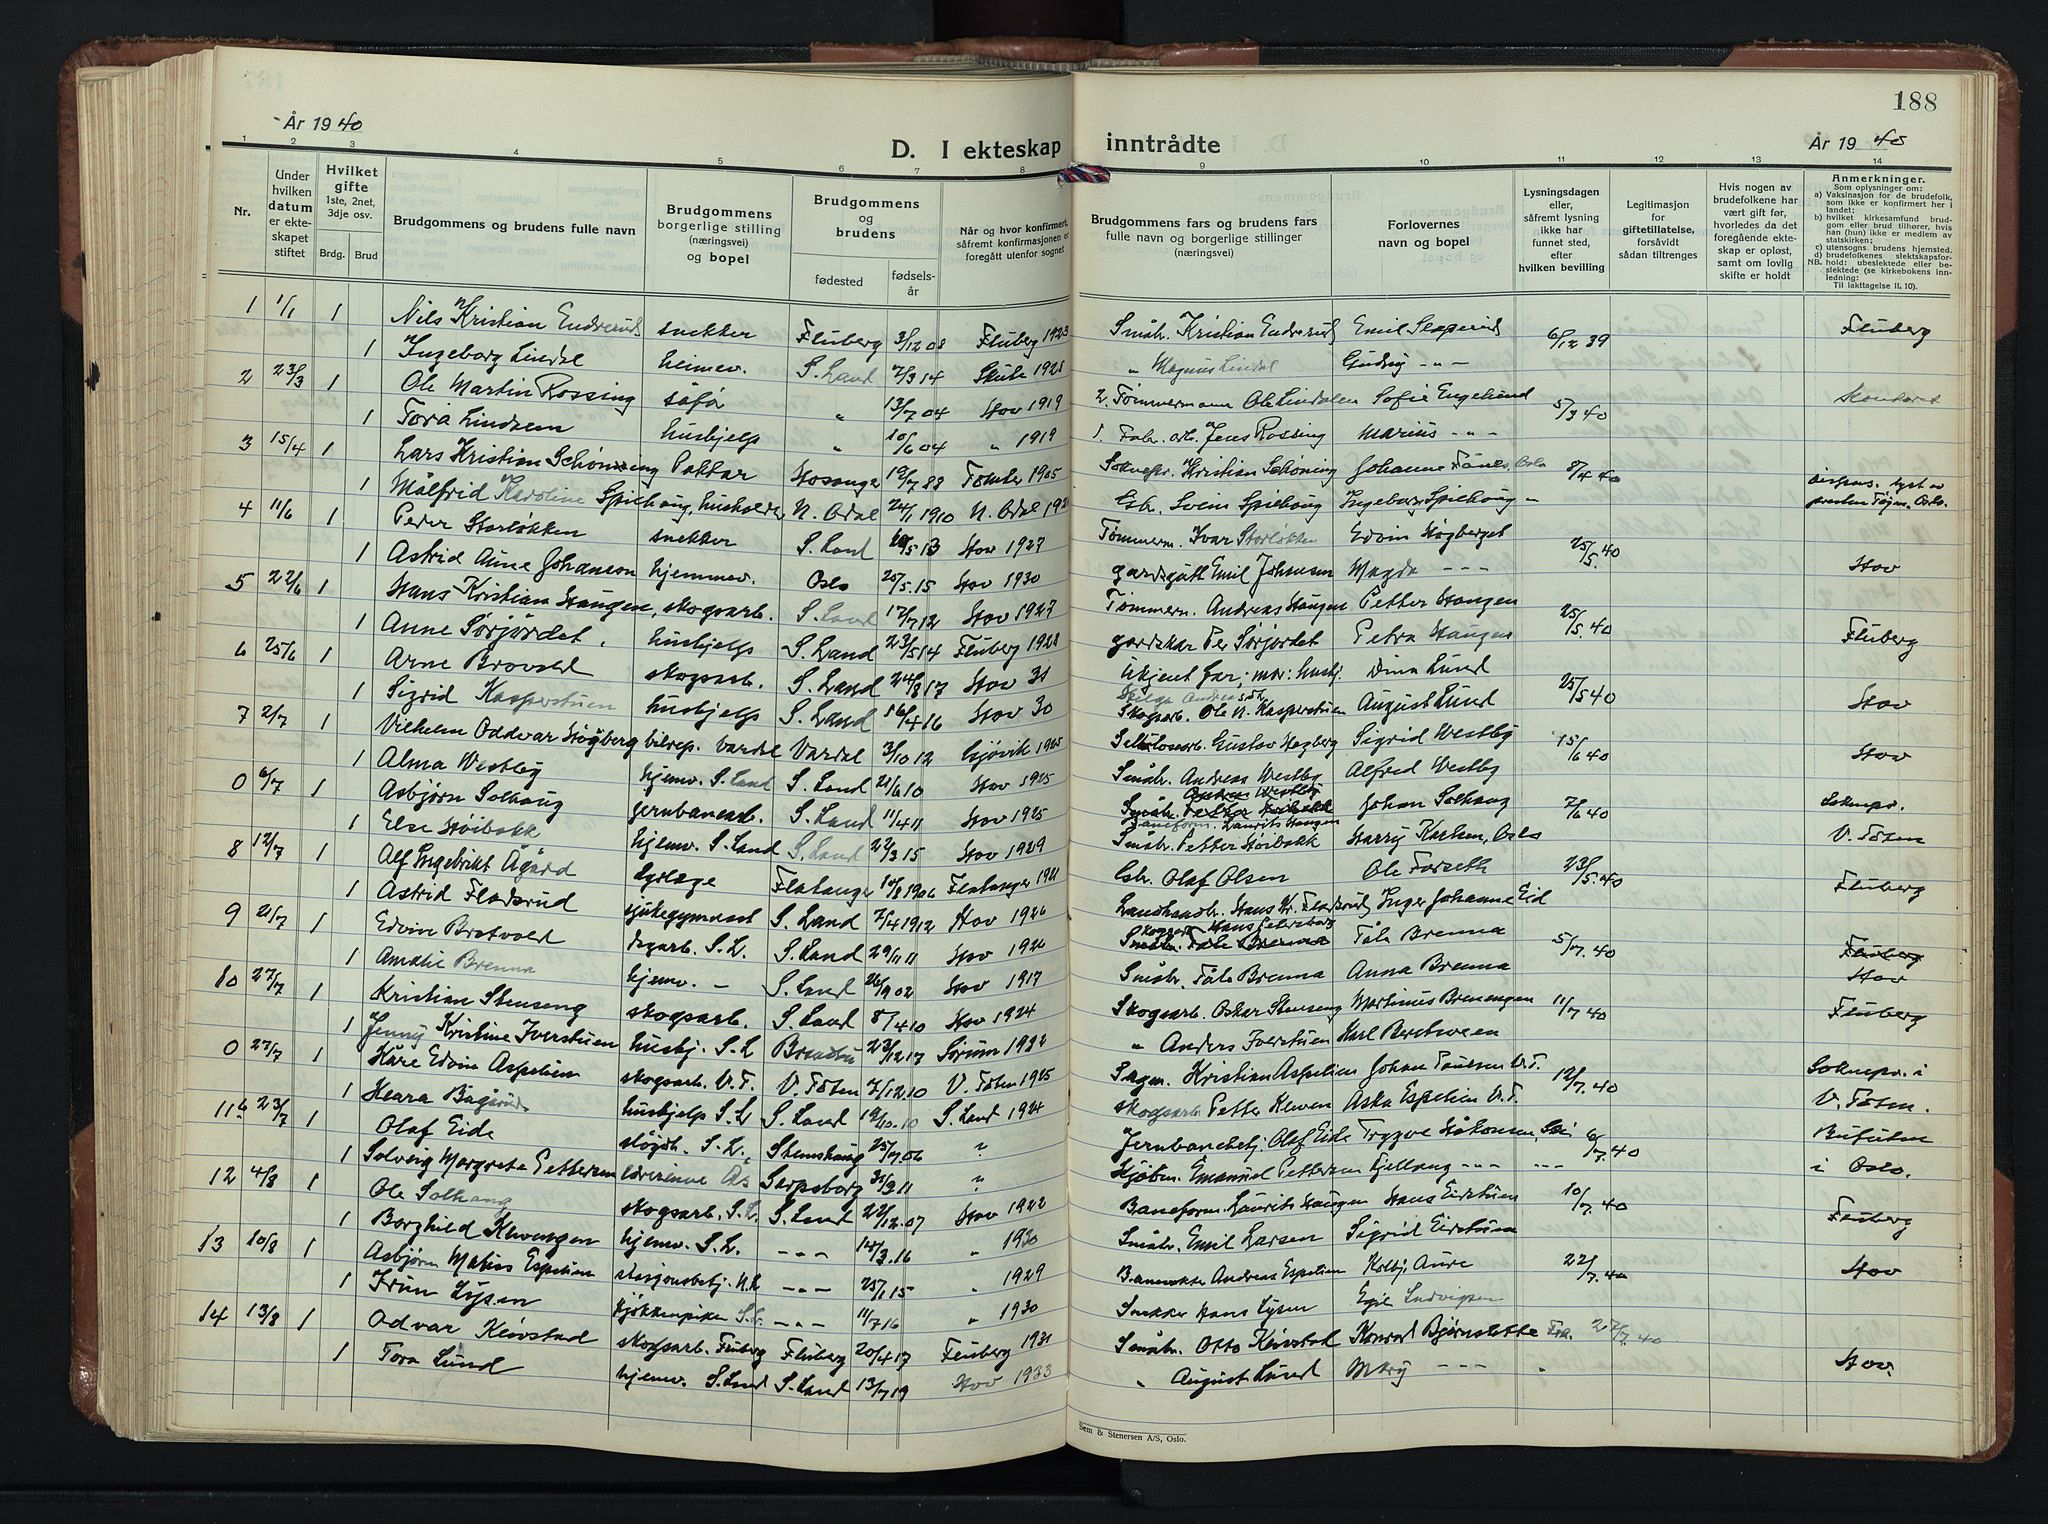 År 1940
188
D. I ekteskap inntrådte
År 1940
1 2 3 4 5 6 7 8 9 10 11 12 13 14
Nr.
Under hvilken datum er ekteskapet stiftet
Hvilket gifte 1ste, 2net, 3dje osv.
Brdg. Brud
Brudgommens og brudens fulle navn
Brudgommens borgerlige stilling (næringsvei) og bopel
Brudgommens og brudens
fødested fødselsår
Når og hvor konfirmert, såfremt konfirmasjonen er foregått utenfor sognet
Brudgommens fars og brudens fars fulle navn og borgerlige stillinger (næringsvei)
Forlovernes navn og bopel
Lysningsdagen eller, såfremt lysning ikke har funnet sted, efter hvilken bevilling
Legitimasjon for giftetillatelse, forsåvidt sådan tiltrenges
Hvis nogen av brudefolkene har vært gift før, hvorledes da det foregående ekteskap er opløst, samt om lovlig skifte er holdt
Anmerkninger.
Som oplysninger om:
a) Vaksinasjon for de brudefolk, som ikke er konfirmert her i landet;
b) hvilket kirkesamfund brudgom eller brud tilhører, hvis han (hun) ikke er medlem av statskirken;
c) utensogns brudens hjemsted.
d) brudefolkenes slektskapsforhold: ubeslektede eller beslektede (se kirkebokens innledning:
NB. Til iakttagelse II. 10).
1 1/1 1 Nils Kristian Endrerud snekker Fluberg 3/12 08 Fluberg 1923 Småbr. Kristian Endrerud Emil 6/12 39 Fluberg
1 Ingeborg Lindal heimev. S. Land 7/3 14 Skute 1928 " Magnus Lindal Gudvig - " -
2 23/3 1 Ole Martin Rossing sjåfør " 13/7 04 Hov 1919 2. Tømmermann Ole Lindalen Sofie Engelund 5/3 40
1 Tora Lindsem hushjelp " 10/6 04 " 1919 1. Fabr. arb. Jens Rossing Marius - " -
3 15/4 1 Lars Kristian Schønning Doktar Hosanger 19/7 88 Tomter 1905 Sokнepr. Kristian Schøning Johanne Fånes, Oslo 8/4 40
1 Målfrid Karoline Spiehaug, husholder N. Odal 24/1 1910 N. Odal Gbr. Svein Spiehaug Ingeborg Spiehaug - " presten Oslo.
4 11/6 1 Peder Storløkken snekker S. Land 13 Hov 1927 Tømmerm. Ivar Storløkken Edvin Høgberget 25/5 40 Hov
1 Astrid Anne Johansen hjemmev. Oslo 25/5 15 Hov 1930 gardsgutt Emil Johansen Magda - - -
5 22/6 1 Hans Kristian Haugen, skogsarb. S. Land 17/7 12 Hov 1927 Tømmerm. Andreas Haugen Petter Haugen 25/5 40 Fluberg
1 Anne Sørjordet, hushjelp S. Land 23/5 14 Fluberg 1928 gardskar Per Sørjordet Petra Haugen
6 25/6 1 Arne Brovold skogsarb. S. Land 24/8 17 Hov 31 Ukjent far; mor: hushj. Helga Andreasdtr. Dina Lund 25/5 40 Hov
1 Sigrid Kasperstuen hushjelp S. Land 16/4 16 Hov 30 Skogsarb. Ole N. Kasperstuen August Lund
7 2/7 1 Vilhelm Oddvar Høgberg bilrep. Vardal Vardal 3/10 12 Gjøvik 1925 Sellulosearb. Gustav Høgberg Sigrid Westby 15/6 40 Hov
1 Alma Westby hjemv. S. Land S. Land 21/6 10 Hov 1925 Småbr. Andreas Westby Alfred Westby
0 6/7 1 Asbjørn Solhaug jernbanearb. S. Land 11/4 11 Hov 1925 Baneform. Laurits Haugen Johan Solhaug 7/6 40 Soknepr. V. Toten
1 Else Høibakk hjemv. S. Land S. Land 22/3 15 Hov 1929 Småbr. Petter Høibakk Harry Karlsen, Oslo
8 12/7 1 Alf Ingebrikt Ågård dyrlege Flatanger 10/8 1906 Flatanger 1921 Gbr. Olaf Olsen Ole Forseth 23/5 40 Fluberg
1 Astrid Fladsrud sjukegymnast S. Land 7/4 1912 Hov 1926 Landhandl. Hans Kr. Fladsrud Inger Johanne Eid
9 21/7 1 Edvin Bratvold dagarb. S. L. S. Land 29/11 11 Hov 1926 Tåle Brenna 5/7 40 Fluberg Hov
1 Amalie Brenna hjemv. - S. Land 26/9 02 Hov 1917 Småbr. Tåle Brenna Anna Brenna
10 27/7 1 Kristian Stenseng skogsarb. S. Land 8/4 10 Hov 1924 Skogsarb. Oskar Stenseng Martinus Brenengen 11/7 40 Fluberg
1 Jenny Kristine Iverstuen hushj. S. L Brandbu 23/12 17 Sørum 1932 " Anders Iverstuen Karl Bertsveen
0 27/7 1 Kåre Edvin Aspelien skogsarb. V.T. V. Toten 7/12 10 V. Toten 1925 Sagm. Kristian Aspelien Johan Paulsen V.T. 12/7 40 Soknepr. i V. Toten.
1 Klara Bågsrud hushjelp S. L S. Land 19/10 10 S. Land 1924 skogsarb. Petter Kleven Aska Espelien V.T.
11 23/7 1 Olaf Eide S. L. Stemshaug 25/7 06 " Jernbanebetj. Olaf Eide Trygve Håkonsen, Ski 6/7 40 i Oslo.
1 Solveig Margrete Pettersen lærerinne Ås Sarpsborg 31/3 11 " Sjøm. Emanuel Pettersen Fjellaug - " - - - -
12 4/8 1 Ole Solhaug skogsarb. S. L. S. Land 22/12 07 Hov 1922 Baneform. Laurits Haugen Hans Eidstuen 10/7 40 Fluberg
1 Borghild Klevengen hjemv. S. L. - " - 14/3 16 " 1930 Småbr. Emil Larsen Sigrid Eidstuen
13 10/8 1 Asbjørn Matias Espelien stasjonsbetj. N. L - " - 25/1 15 " 1929 Banevokter Andreas Espelien Kolbj. Aure 22/7 40 Hov
1 Irun Lysen kjøkkenpike S. L. - " - 11/7 16 " 1930 Snekker Hans Lysen Egil Ludvigsen
14 13/8 1 Odvar Kløvstad skogsarb. Fluberg Fluberg 20/4 17 Fluberg 1931 Småbr. Otto Kløvstad Konrad Bjørnslette 27/7 40 Hov.
1 Tora Lund hjemv. S. Land S. Land 13/7 19 Hov 1933 " August Lund Mary - - - "
Sem & Stenersen A/S, Oslo.